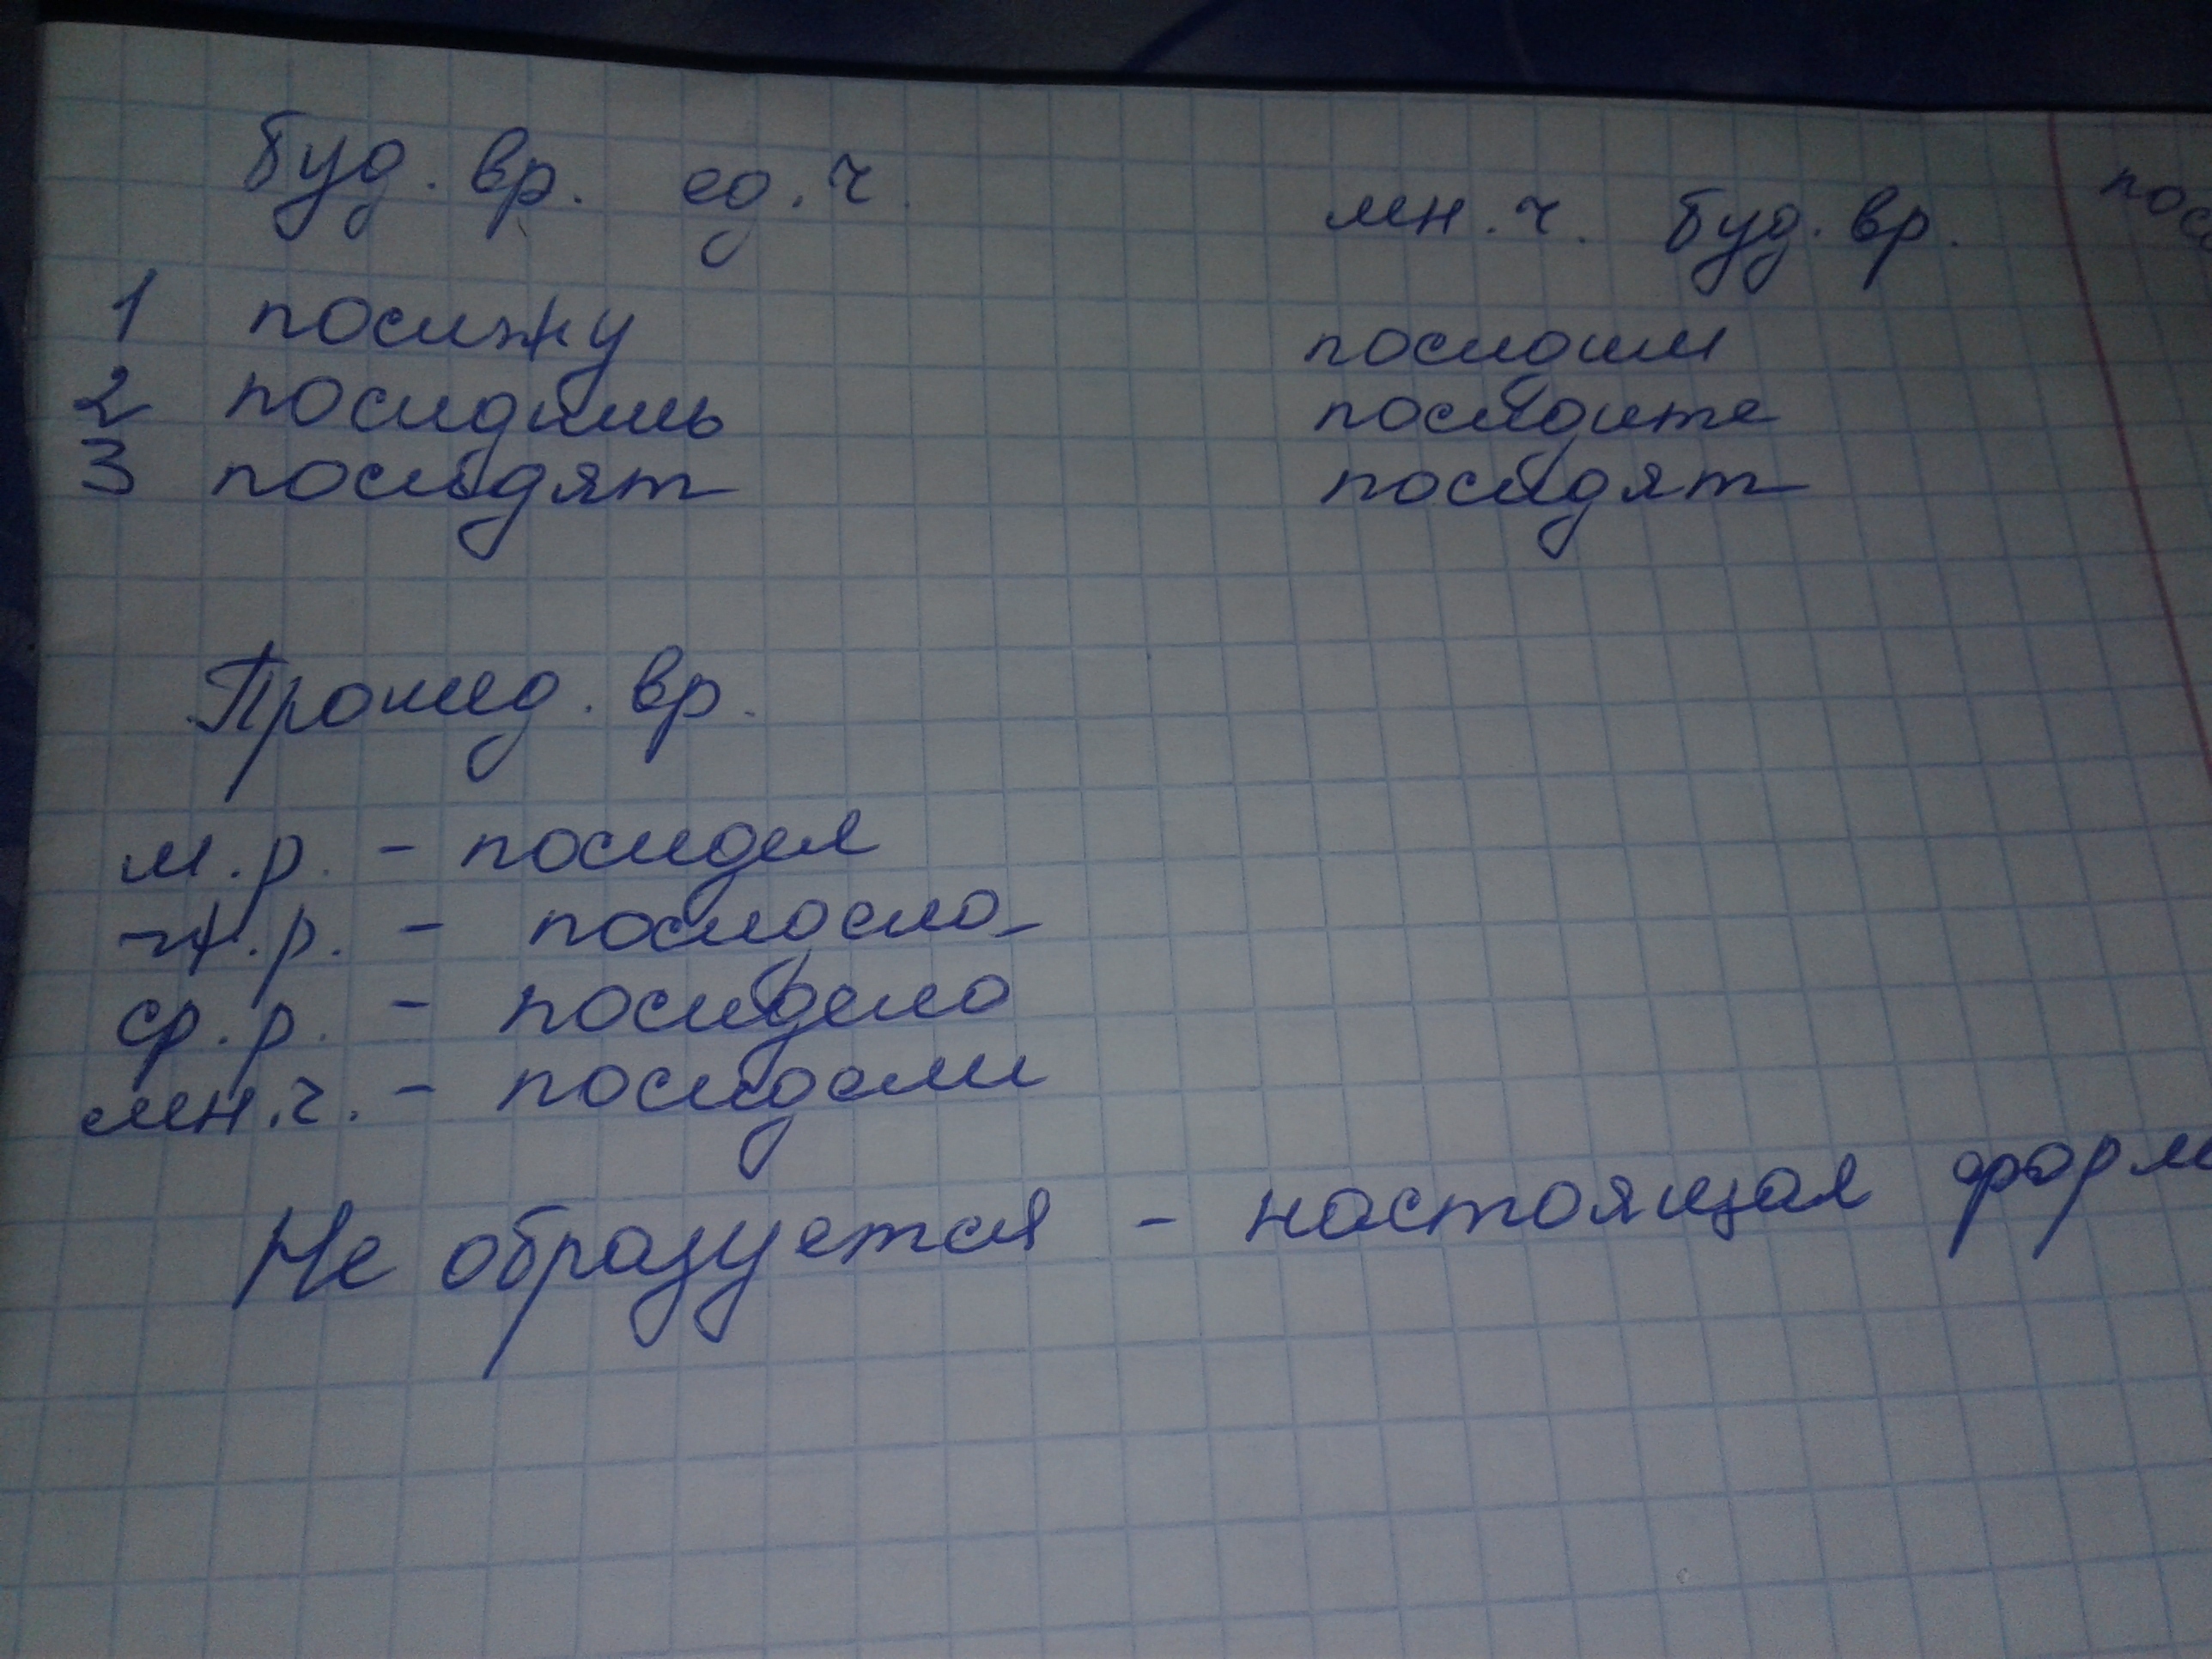 буд. вр. ед. ч.
мн. ч. буд. вр.
1 посижу
2 посидишь
3 посидят
посидим
посидите
посидят
Прошед. вр.
м.р. - посидел
ж.р. - посидела
ср.р. - посидело
мн.ч. - посидели
Не образуется - настоящая форм